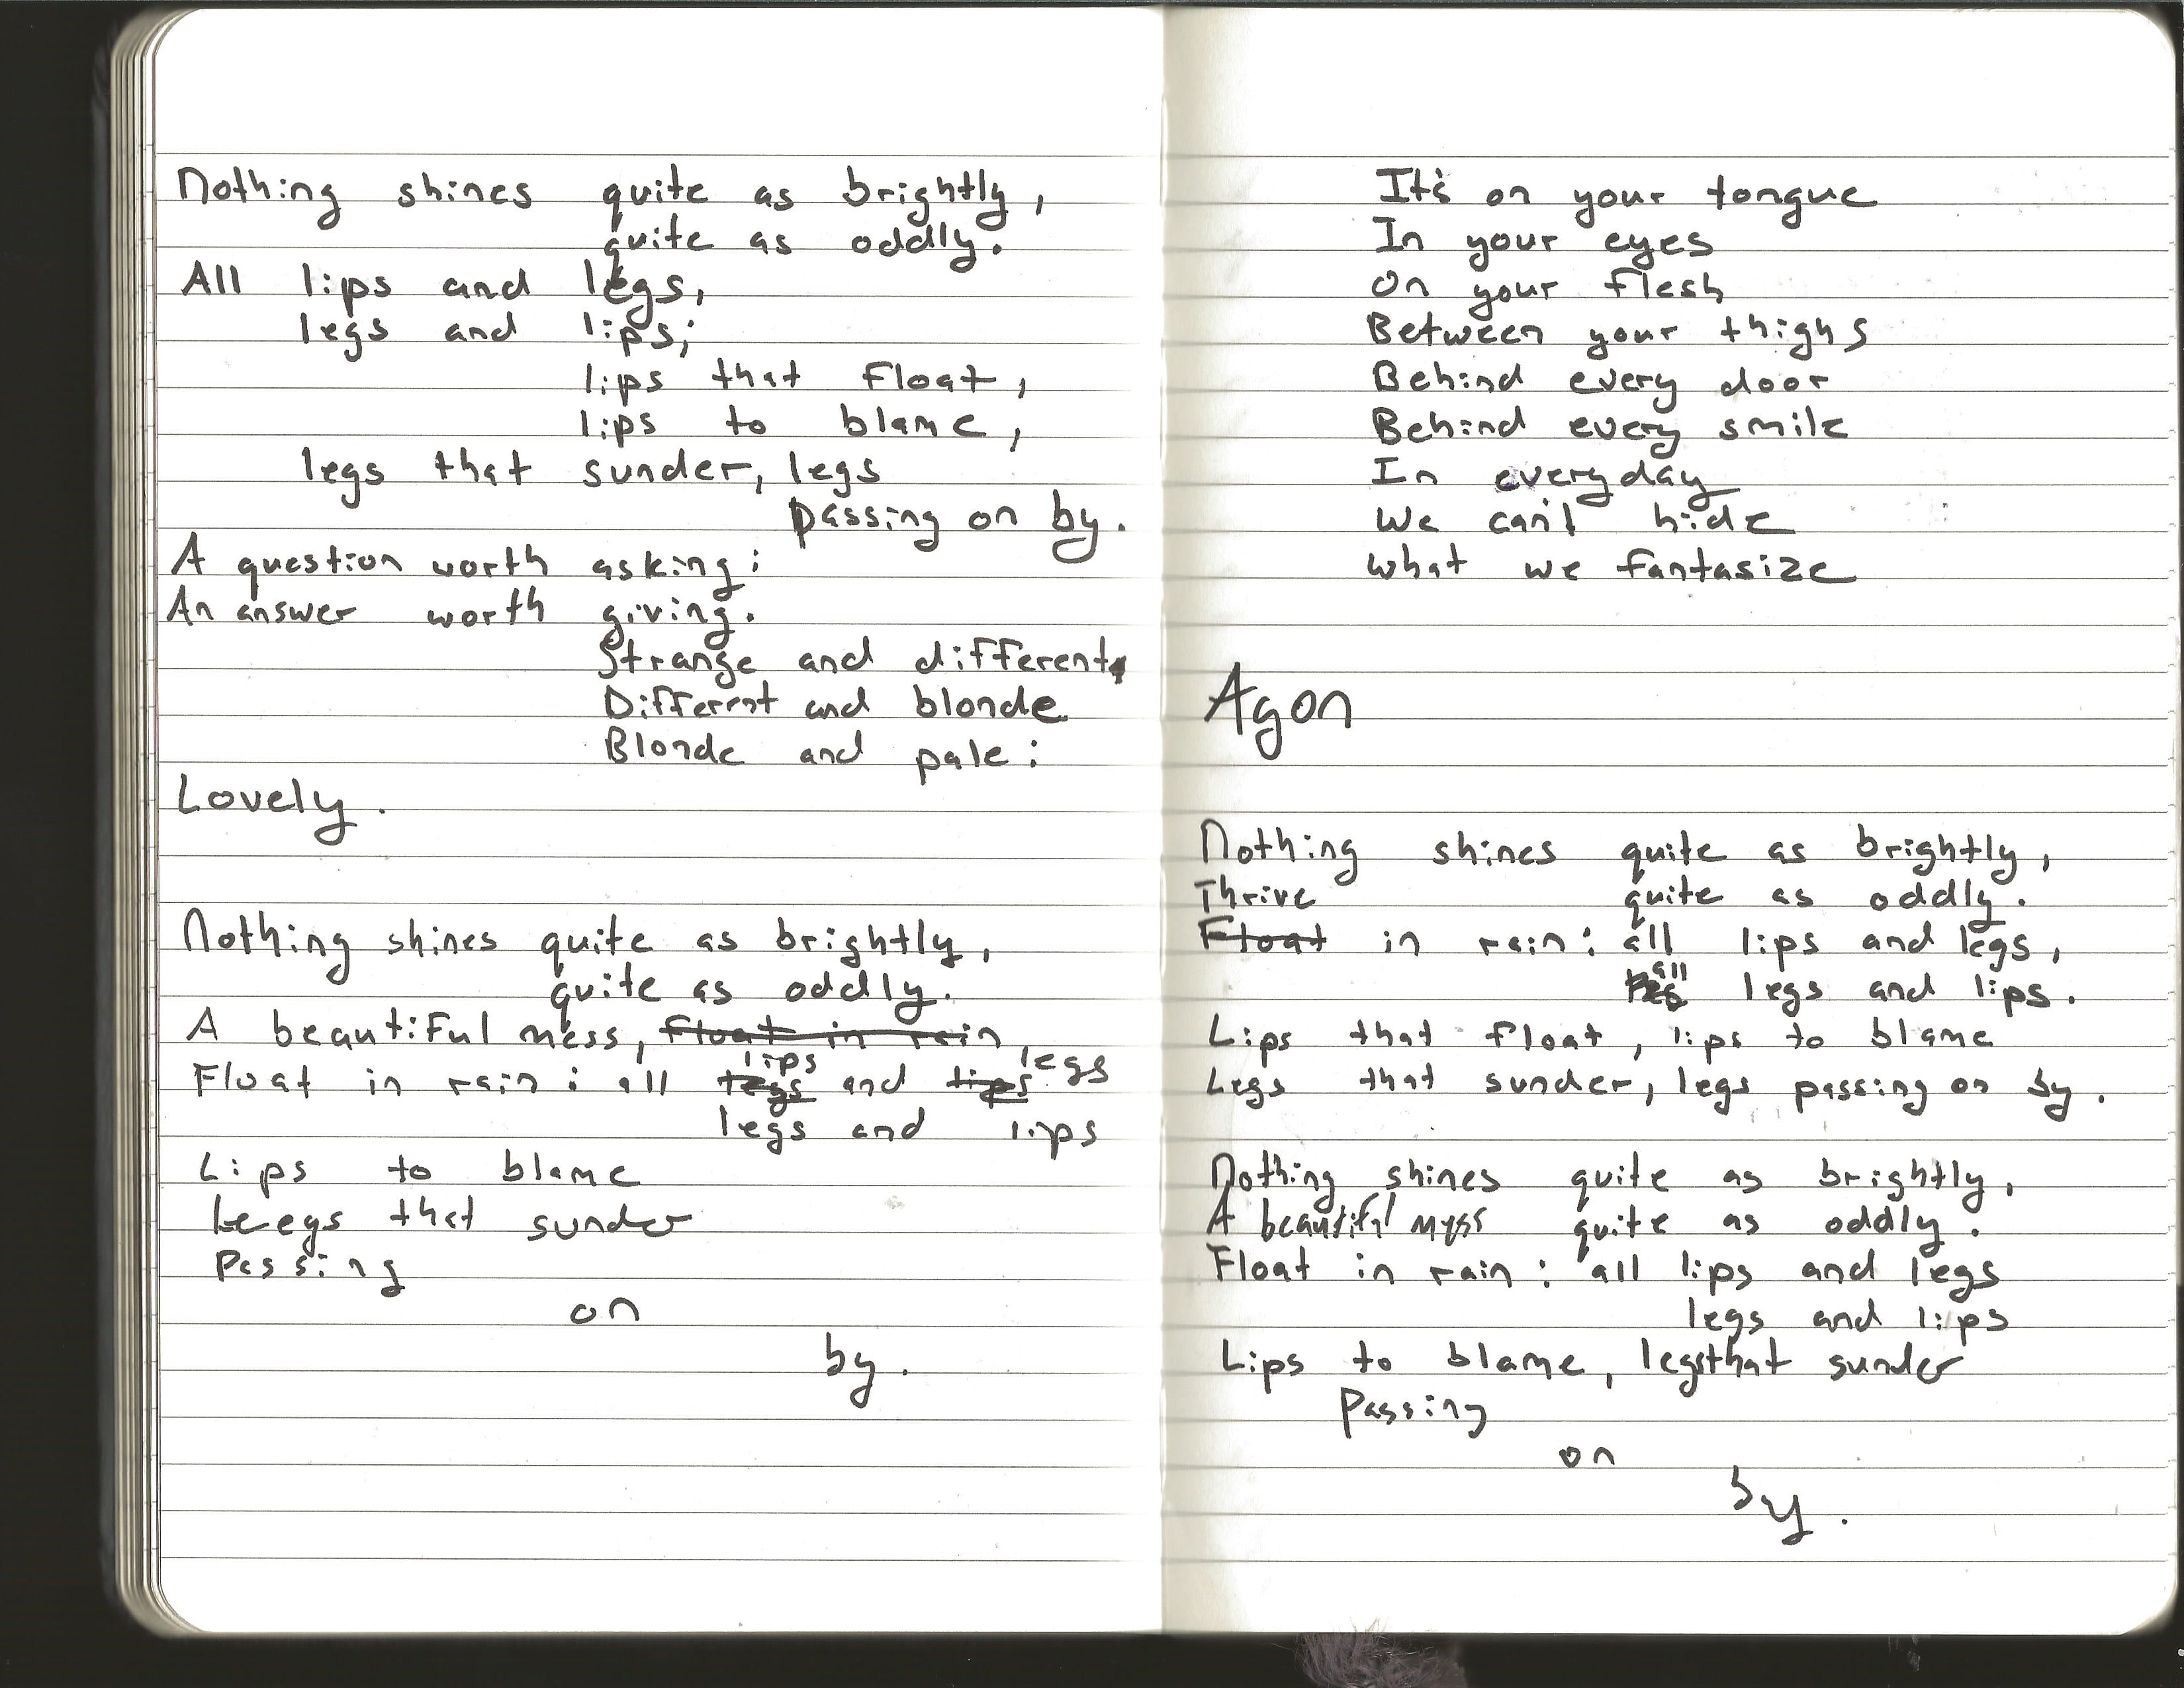 Nothing shines quite as brightly,
quite as oddly.
All lips and legs,
legs and lips;
lips that float,
lips to blame,
legs that sunder, legs
passing on by.
A question worth asking;
An answer worth giving.
Strange and different,
Different and blonde
Blonde and pale:
Lovely.
Nothing shines quite as brightly,
quite as oddly.
A beautiful mess, float in rain
lips legs
Float in rain: all legs and lips
legs and lips
Lips to blame
Legs that sunder
Passing
on
by.
It's on your tongue
In your eyes
On your flesh
Between your thighs
Behind every door
Behind every smile
In everyday
We can't hide
what we fantasize
Agon
Nothing shines quite as brightly,
Thrive quite as oddly.
Float in rain: all lips and legs,
all legs and lips.
Lips that float, lips to blame
Legs that sunder, legs passing on by.
Nothing shines quite as brightly,
A beautiful myss quite as oddly.
Float in rain: all lips and legs
legs and lips
Lips to blame, legs that sunder
Passing
on
by.